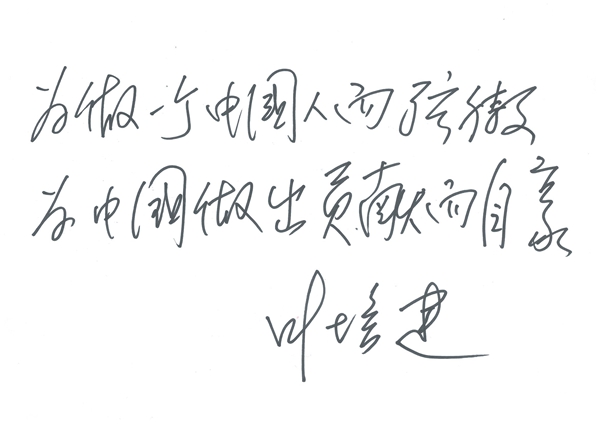 为做一个中国人而骄傲
为中国做出贡献而自豪
叶培建